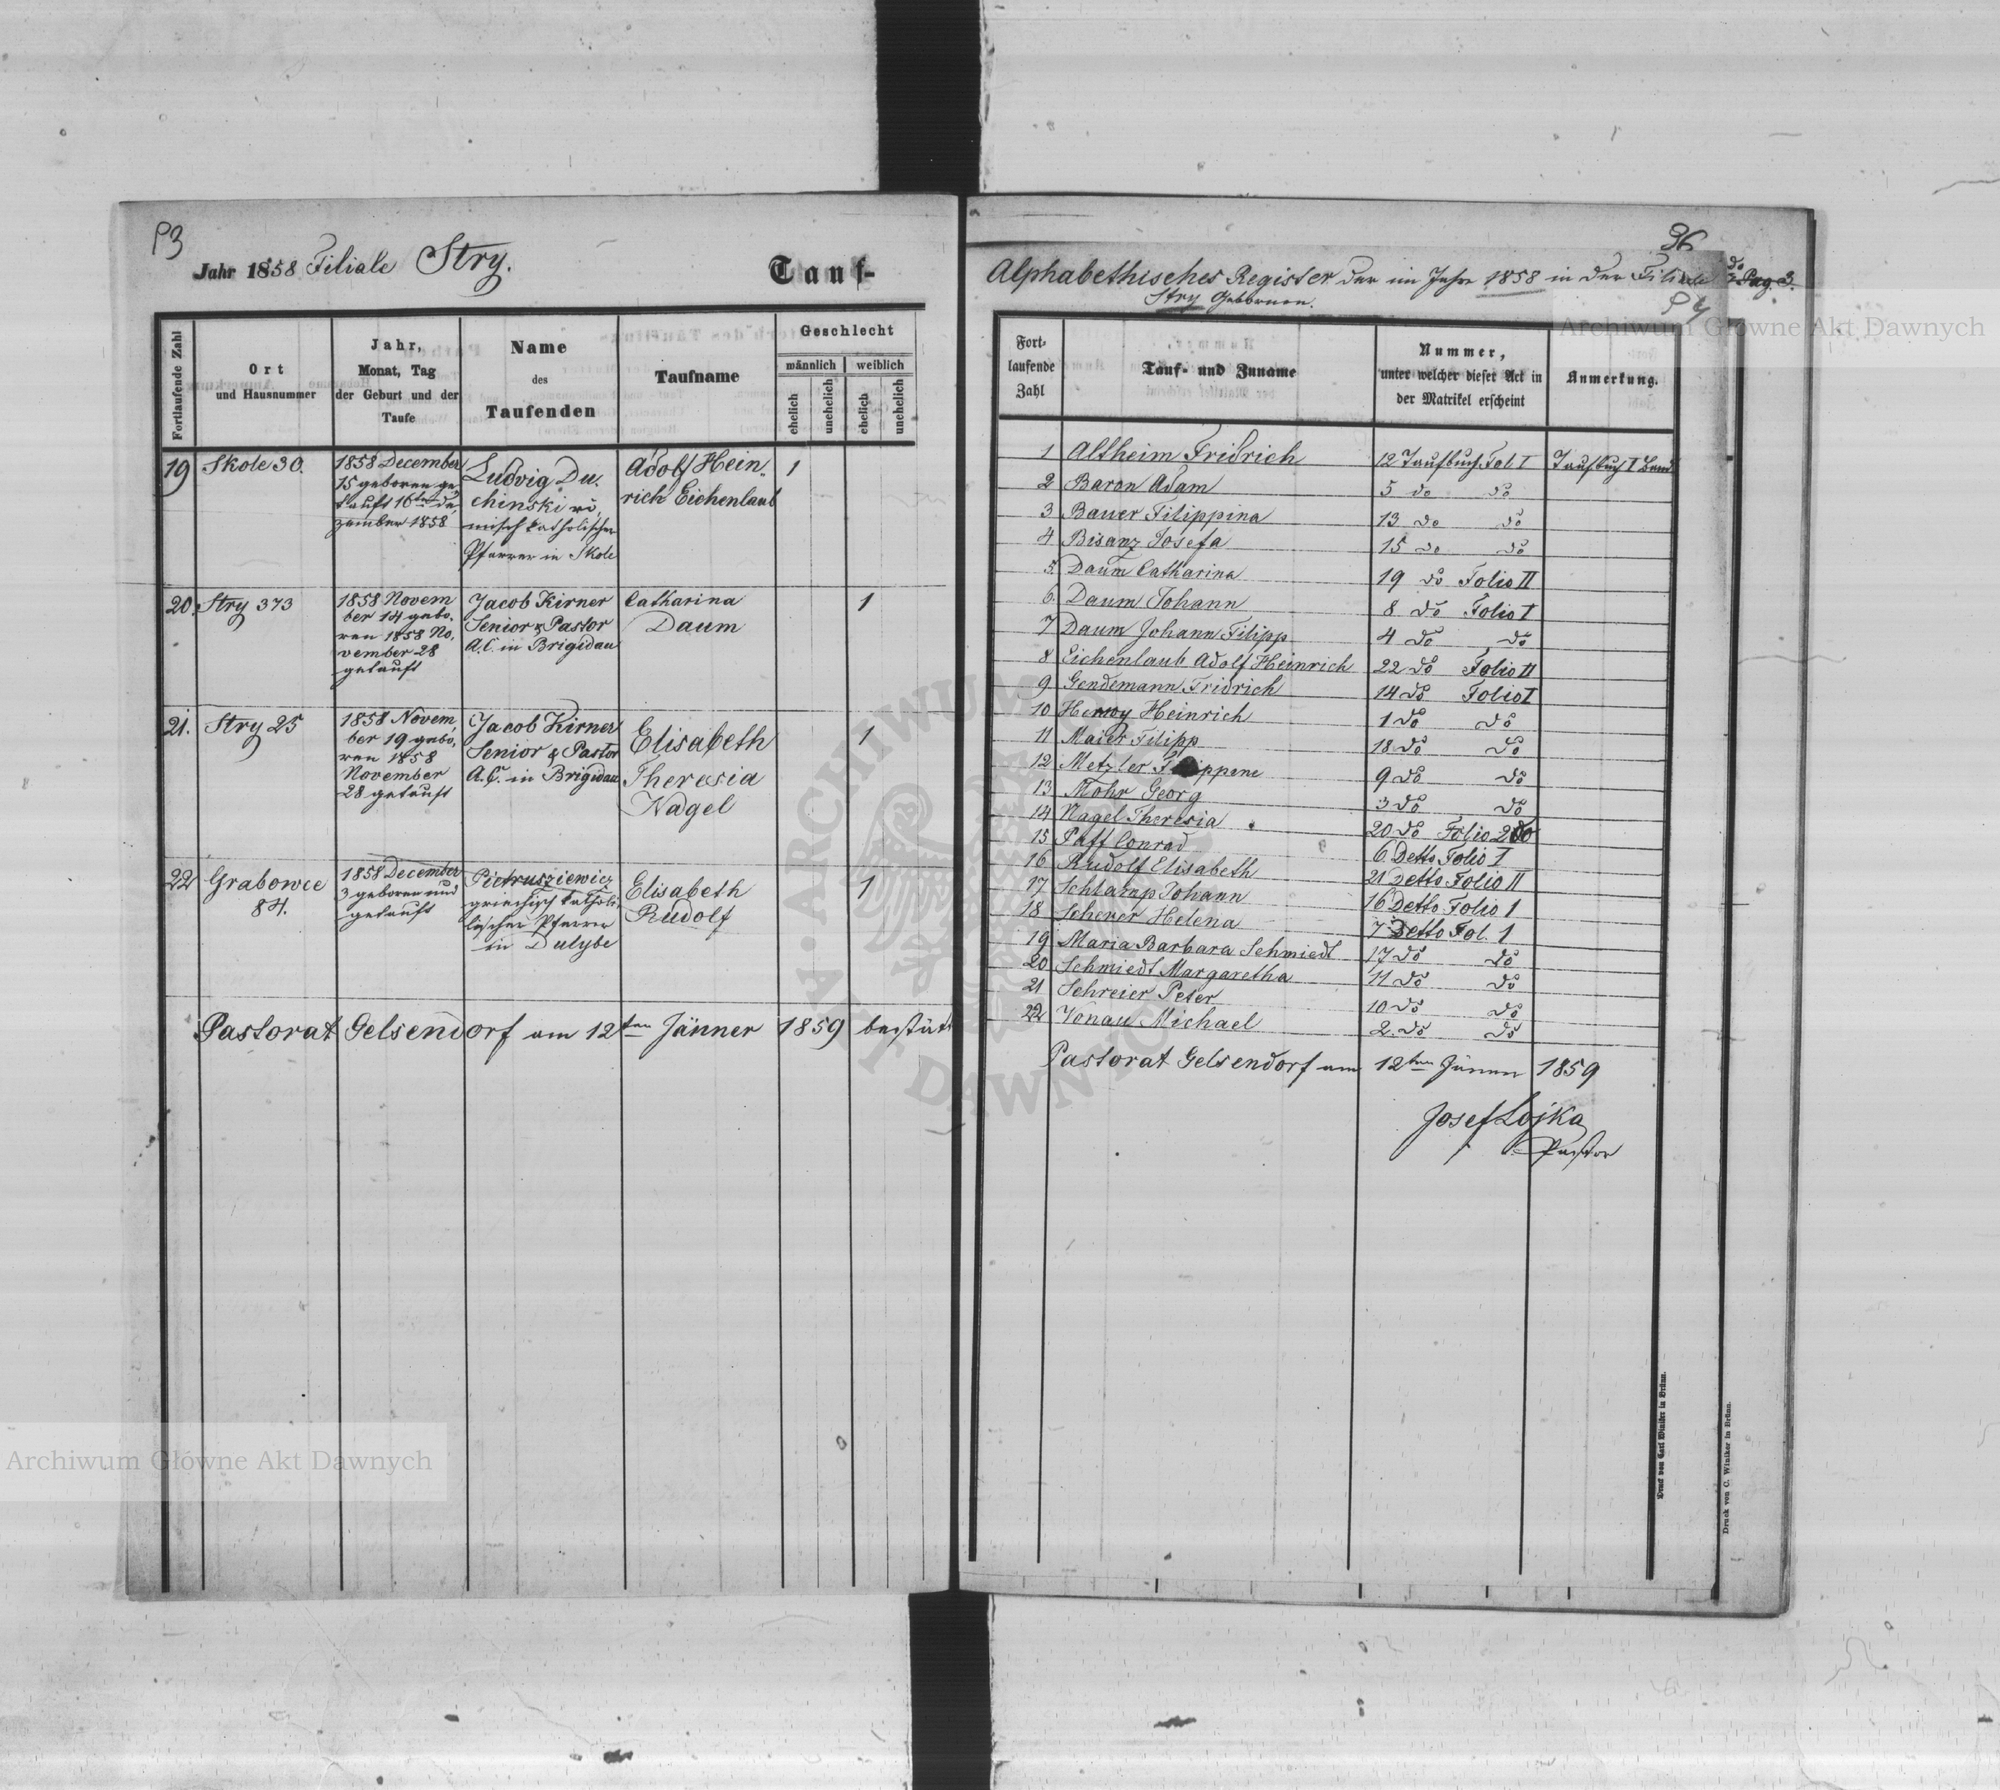 P3
Jahr 1858 Filiale Stry.
Tauf-
Fortlaufende Zahl
Ort
und Hausnummer
Jahr,
Monat, Tag
der Geburt und der
Taufe
Name
des
Taufenden
Taufname
Geschlecht
männlich
weiblich
ehelich
unehelich
ehelich
unehelich
19
Skole 30.
1858 December
15 geboren ge
tauft 16ten De,
zember 1858
Ludvig Du,
chinski rö,
misch katholischer
Pfarrer in Skole
Adolf Hein,
rich Eichenlaub
1
20.
Stry 373
1858 Novem
ber 14 gebo,
ren 1858 No,
vember 28
getauft
Jacob Kirner
Senior & Pastor
A.C. in Brigidau
Catharina
Daum
1
21.
Stry 25
1858 Novem,
ber 19 gebo,
ren 1858
November
28 getauft
Jacob Kirner
Senior & Pastor
A.C. in Brigidau
Elisabeth
Theresia
Nagel
1
22
Grabowce
84.
1858 December
3 geboren und
getauft
Pietrusziewicz
griechisch katholi,
lischer Pfarrer
in Dulybe
Elisabeth
Rudolf
1
Pastorat Gelsendorf am 12ten Jänner 1859
36
Alphabethisches Register der im Jahre 1858 in der Filiale
Stry Gebornen.
do
Pag. 3.
Fort-
laufende
Zahl
Tauf- und Zuname
Nummer,
unter welcher dieser Act in
der Matrikel erscheint
Anmerkung.
1 Altheim Fridrich 12 Taufbuch Fol I Taufbuch I Band
2 Baron Adam 5 do do
3 Bauer Filippina 13 do do
4 Bisanz Josefa 15 do do
5. Daum Catharina 19 do Folio II
6. Daum Johann 8 do Folio I
7 Daum Johann Filipp 4 do do
8 Eichenlaub Adolf Heinrich 22 do Folio II
9 Gendemann Fridrich 14 do Folio I
10 Heinrich 1 do do
11 Maier Filipp 18 do do
12 Metzler 9 do do
13 Mohr Georg 3 do do
14 Nagel Theresia 20 do Folio 2do
15 Paff Conrad 6 Detto Folio I
16 Rudolf Elisabeth 21 Detto Folio II
17 Schlamp Johann 16 Detto Folio 1
18 Scherer Helena 7 Detto Fol. 1
19 Maria Barbara Schmiedt 17 do do
20 Schmiedt Margaretha 11 do do
21 Schreier Peter 10 do do
22 Vonau Michael 2 do do
Pastorat Gelsendorf am 12ten Jänner 1859
Josef Lojka
Pastor
Druck von Carl Winiker in Brünn.
Druck von C. Winiker in Brünn.
Archiwum Główne Akt Dawnych
Archiwum Główne Akt Dawnych